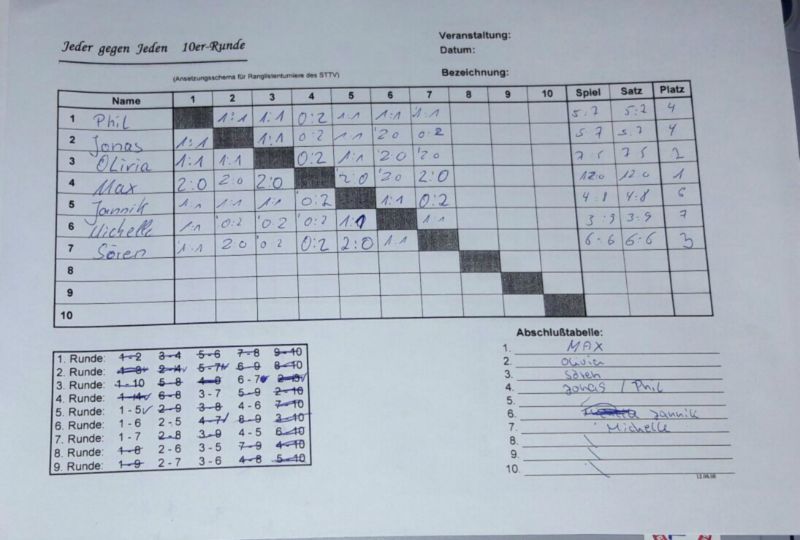 Jeder gegen Jeden 10er-Runde
Veranstaltung:
Datum:
(Ansetzungsschema für Ranglistenturniere des STTV)
Bezeichnung:
Name 1 2 3 4 5 6 7 8 9 10 Spiel Satz Platz
1 Phil 1:1 1:1 0:2 1:1 1:1 1:1 5:7 5:7 4
2 Jonas 1:1 1:1 0:2 1:1 2:0 0:2 5:7 5:7 4
3 Olivia 1:1 1:1 0:2 1:1 2:0 2:0 7:5 7:5 2
4 Max 2:0 2:0 2:0 2:0 2:0 2:0 12:0 12:0 1
5 Jannik 1:1 1:1 1:1 0:2 1:1 0:2 4:8 4:8 6
6 Michelle 1:1 0:2 0:2 0:2 1:1 1:1 3:9 3:9 7
7 Sören 1:1 2:0 0:2 0:2 2:0 1:1 6:6 6:6 3
8
9
10
1. Runde: 1-2 3-4 5-6 7-8 9-10
2. Runde: 2-4 5-7 6-9 8-10
3. Runde: 1-10 5-8 4-9 6-7 2-3
4. Runde: 1-4 6-8 3-7 5-9 2-10
5. Runde: 1-5 2-9 3-8 4-6 7-10
6. Runde: 1-6 2-5 4-7 8-9 3-10
7. Runde: 1-7 2-8 3-9 4-5 6-10
8. Runde: 1-8 2-6 3-5 7-9 4-10
9. Runde: 1-9 2-7 3-6 4-8 5-10
Abschlußtabelle:
1. MAX
2. Olivia
3. Sören
4. Jonas / Phil
5.
6. Jannik
7. Michelle
8.
9.
10.